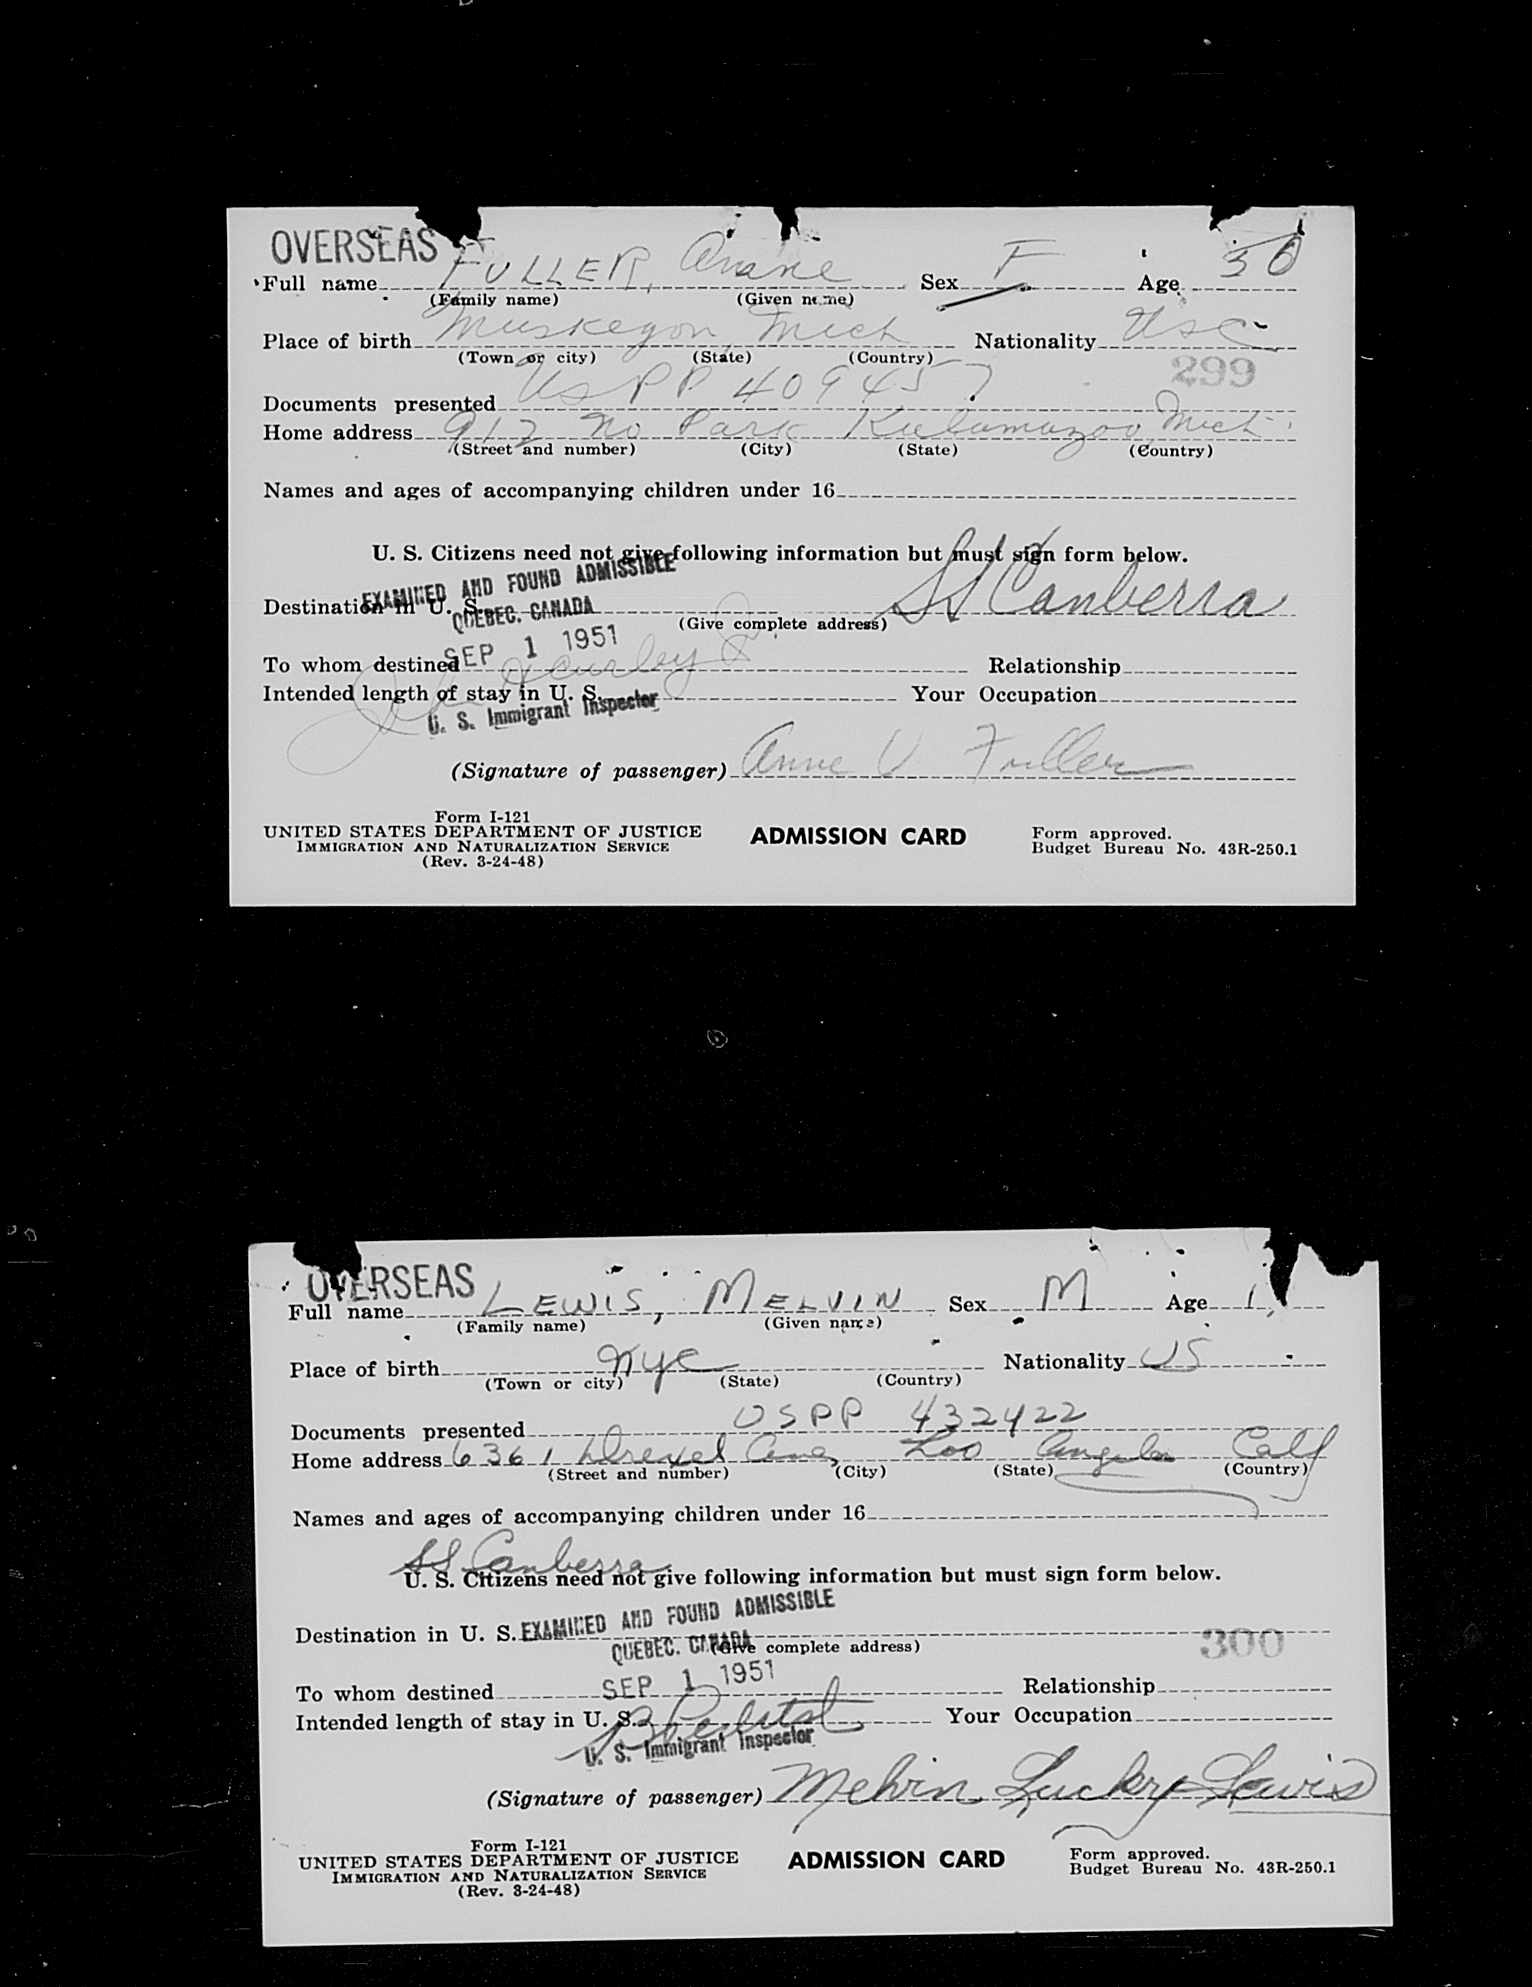 OVERSEAS
Full name FULLER, Anne Sex F Age 30
(Family name) (Given name)
Place of birth Muskegon, Mich Nationality USC
(Town or city) (State) (Country)
299
Documents presented US PP 409457
Home address 912 No Park Kalamazoo, Mich
(Street and number) (City) (State) (Country)
Names and ages of accompanying children under 16
U. S. Citizens need not give following information but must sign form below.
EXAMINED AND FOUND ADMISSIBLE
Destination in U. S. SS Canberra
QUEBEC. CANADA
(Give complete address)
SEP 1 1951
To whom destined Relationship
Intended length of stay in U. S. Your Occupation
U. S. Immigrant Inspector
(Signature of passenger) Anne V Fuller
Form I-121
UNITED STATES DEPARTMENT OF JUSTICE ADMISSION CARD Form approved.
IMMIGRATION AND NATURALIZATION SERVICE Budget Bureau No. 43R-250.1
(Rev. 3-24-48)
OVERSEAS
Full name LEWIS, MELVIN Sex M Age
(Family name) (Given name)
Place of birth Nyc Nationality US
(Town or city) (State) (Country)
Documents presented USPP 432422
Home address 6361 Drexel Ave, Los Angeles Calf
(Street and number) (City) (State) (Country)
Names and ages of accompanying children under 16
SS Canberra
U. S. Citizens need not give following information but must sign form below.
EXAMINED AND FOUND ADMISSIBLE
Destination in U. S. 300
QUEBEC. CANADA
(Give complete address)
SEP 1 1951
To whom destined Relationship
Intended length of stay in U. S. Your Occupation
U. S. Immigrant Inspector
(Signature of passenger) Melvin Lucky Lewis
Form I-121
UNITED STATES DEPARTMENT OF JUSTICE ADMISSION CARD Form approved.
IMMIGRATION AND NATURALIZATION SERVICE Budget Bureau No. 43R-250.1
(Rev. 3-24-48)